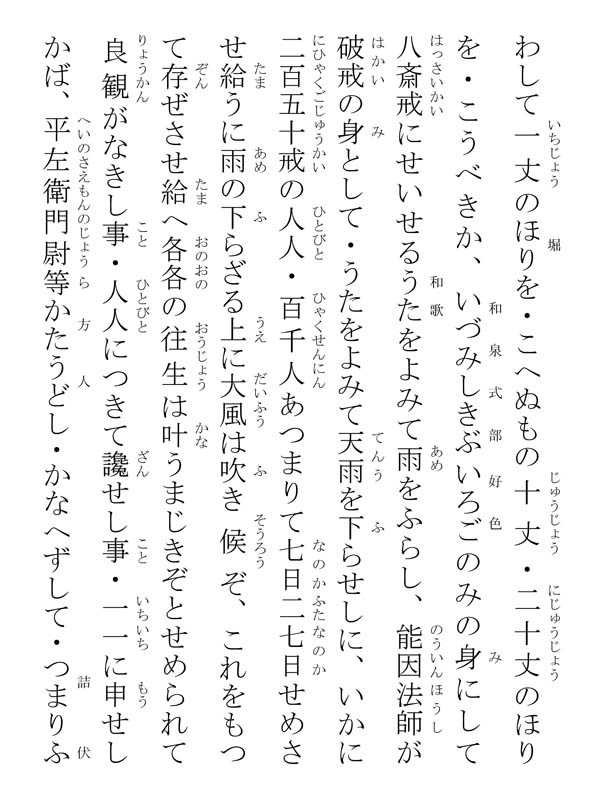 わして一丈のほりを・こへぬもの十丈・二十丈のほり
を・こうべきか、いづみしきぶいろごのみの身にして
八斎戒にせいせるうたをよみて雨をふらし、能因法師が
破戒の身として・うたをよみて天雨を下らせしに、いかに
二百五十戒の人人・百千人あつまりて七日二七日せめさ
せ給うに雨の下らざる上に大風は吹き候ぞ、これをもつ
て存ぜさせ給へ各各の往生は叶うまじきぞとせめられて
良観がなきし事・人人につきて讒せし事・一一に申せし
かば、平左衛門尉等かたうどし・かなへずして・つまりふ